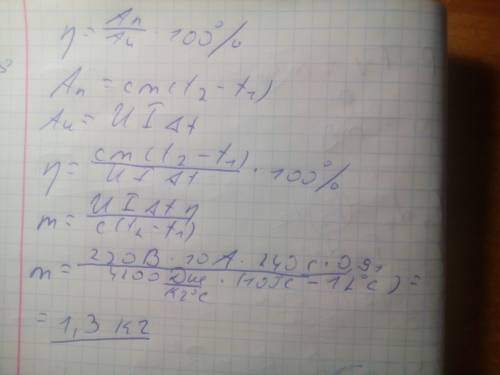 η = Aп/Aи · 100%
Aп = cm(t₂ - t₁)
Aи = UIΔt
η = cm(t₂ - t₁)/UIΔt · 100%
m = UIΔtη/c(t₂ - t₁)
m = 220В · 10А · 240с · 0,91/4200 Дж/кг°С · (100с - 12°с) =
= 1,3 кг